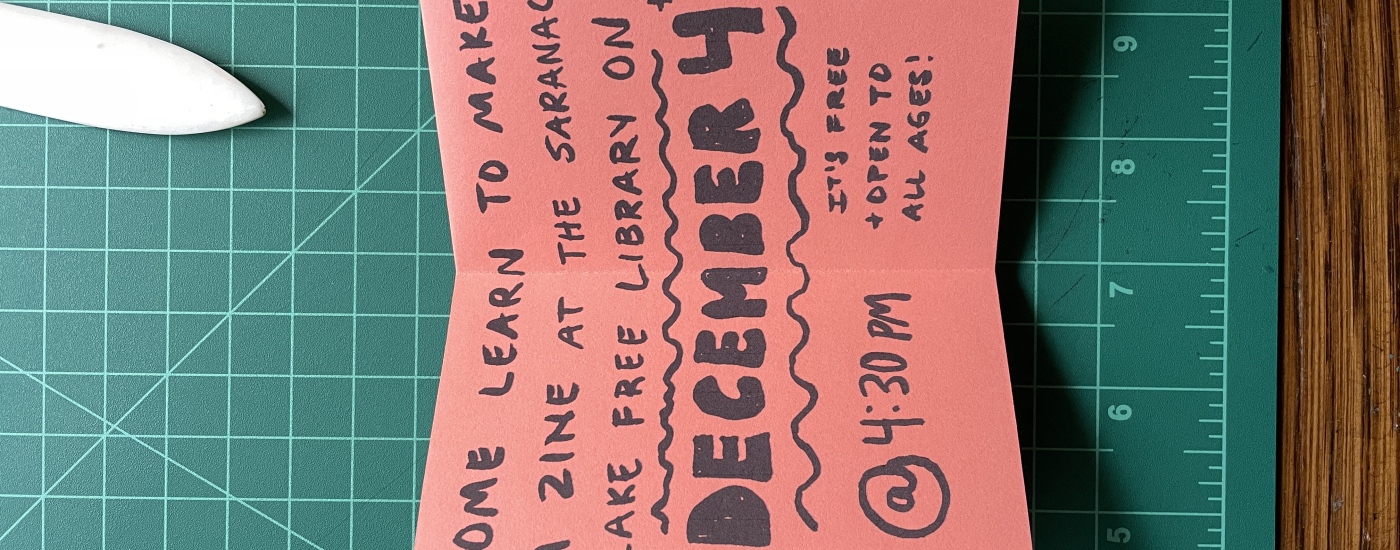 OME LEARN TO MAKE
ZINE AT THE SARANAC
LAKE FREE LIBRARY ON
DECEMBER 4
@ 4:30 PM
IT'S FREE
+ OPEN TO
ALL AGES!
5 6 7 8 9